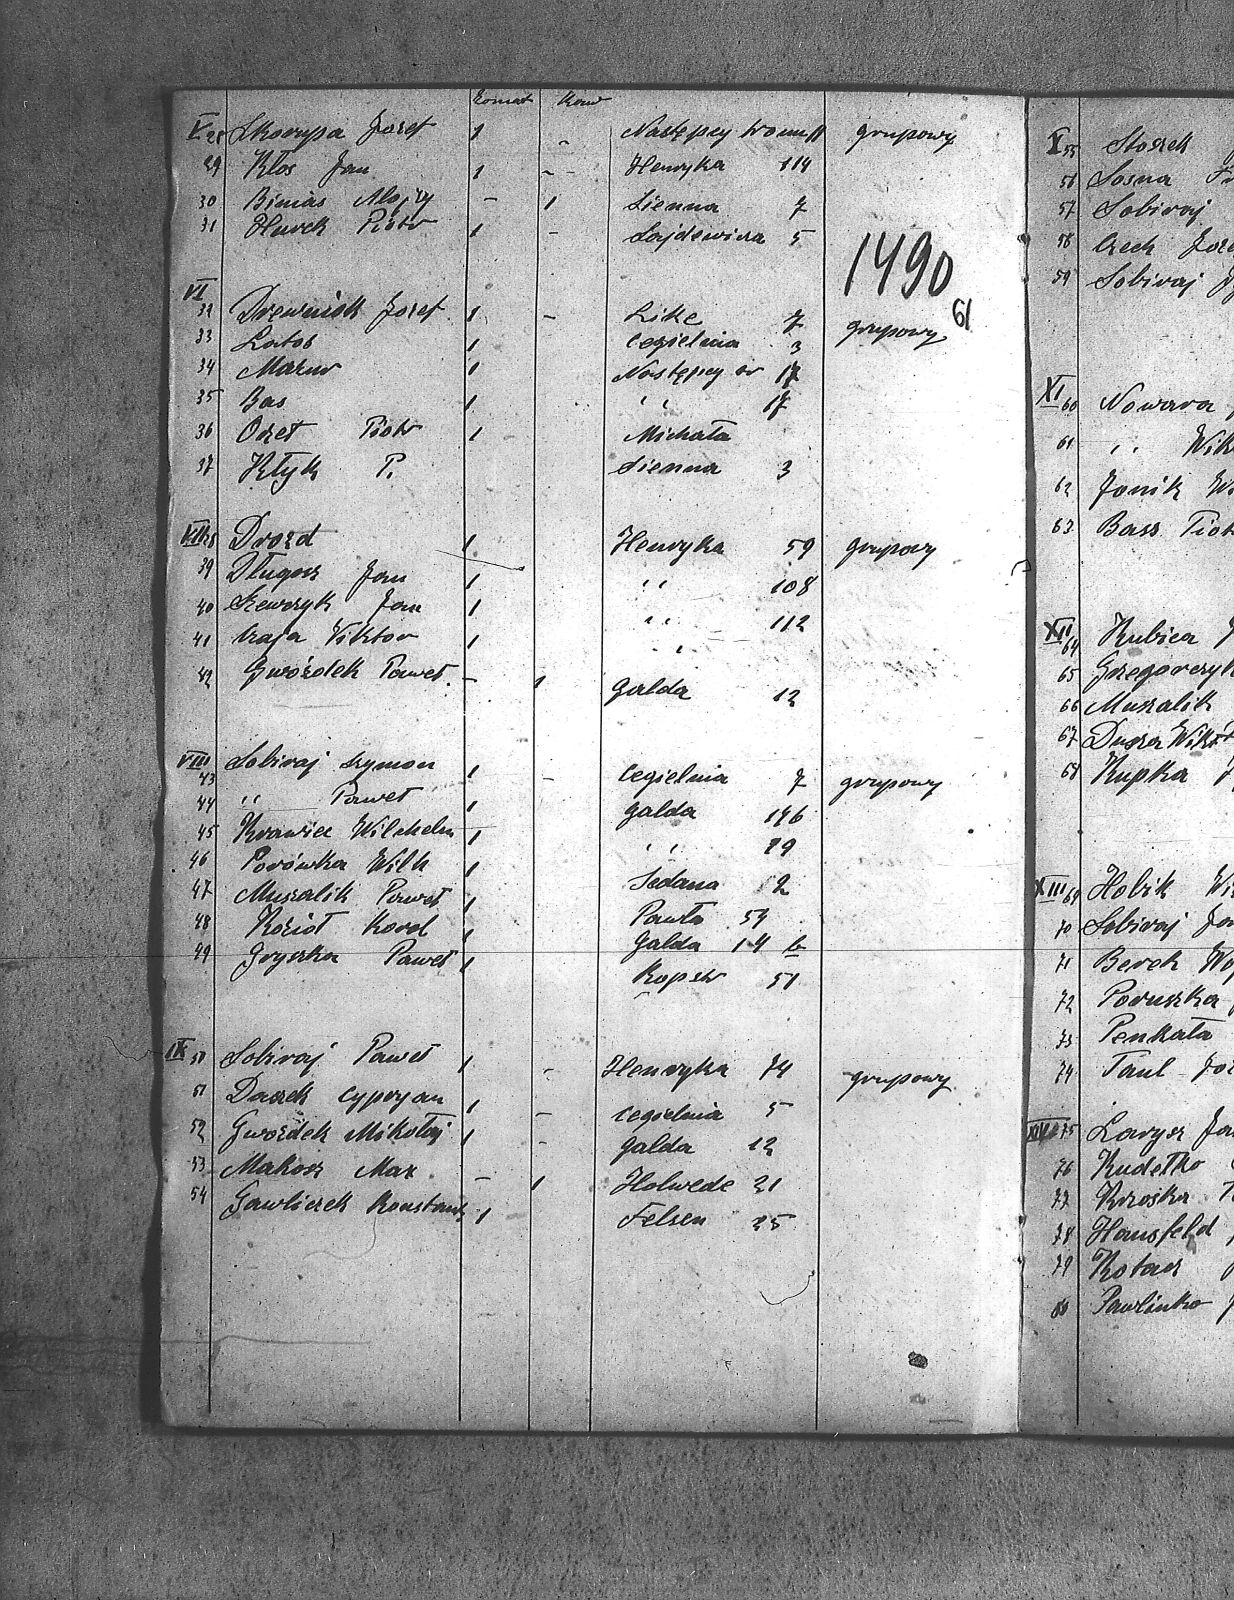 V 28 Skorupa Jozef 1 - Następcy tronu 11 grupowy
29 Kłos Jan 1 - - Henryka 114
30 Bimas Alojzy - 1 Sienna 7
31 Hurek Piotr 1 - 5
1490
61
VI
32 Drewniok Jozef 1 - 7 grupowy
33 Latos 1 Cegielnia 3
34 Mazur 1 Następcy tr 17
35 Bas 1 ,, 17
36 Ozet Piotr 1 Michała
37 Kłyk P. Sienna 3
VII 38 Drozd 1 Henryka 59 grupowy
39 Długosz Jan 1 ,, 108
40 Szewczyk Jan 1 ,, 112
41 Czaja Viktor 1 ,
42 Gwóździek Paweł - 1 Galda 12
VIII
43 Sobiraj Szymon 1 - Cegielnia 7 grupowy
44 ,, Paweł 1 Galda 146
45 Krawiec Wilchelm 1 ,, 19
46 Porówka Wilh 1 Sedana 2
47 Muszalik Paweł 1 Pawła 59
48 Kozioł Karol 1 Galda 14 b
49 Gryszka Paweł 1 51
IX 50 Sobiraj Paweł 1 - Henryka 74 grupowy
51 Daszek Cypryan 1 - Cegielnia 5
52 Gwoździek Mikołaj 1 - Galda 12
53 Makosz Max - 1 Holwede 21
54 Gawliczek Konstanty 1 Felsen 25
X 55 Stoszek
56 Sosna
57 Sobiraj
58 Czech
59 Sobiraj
XI 60 Nowara
61 ,,
62 Jonik
63 Bass
XII 64 Kubica
65
66 Muszalik
67
68 Kupka
XIII 69 Hobik
70 Sobiraj
71 Berek
72 Poruszka
73 Penkała
74 Paul
XIV 75 Lorysz
76 Kudełko
77 Kroska
78 Hansfeld
79 Kołacz
80 Pawlinko